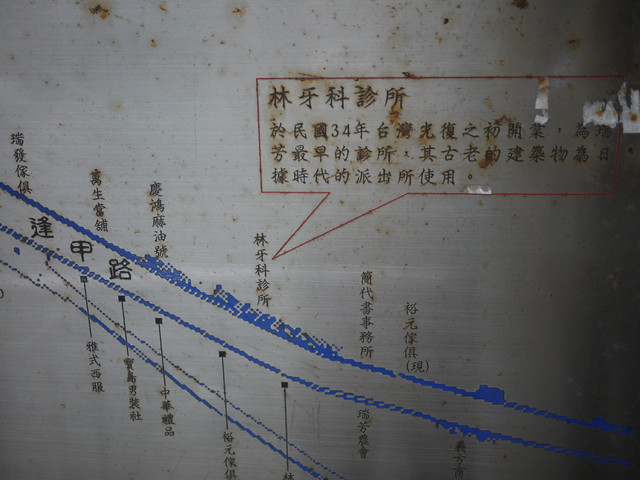 林牙科診所
於民國34年台灣光復之初開業，為瑞
芳最早的診所，其古老的建築物為日
據時代的派出所使用。
瑞發傢俱
萬生當舖
慶鴻麻油號
林牙科診所
簡代書事務所
裕元傢俱(現)
逢甲路
雅式西服
寶島男裝社
中華禮品
裕元傢俱
瑞芳農會
義方